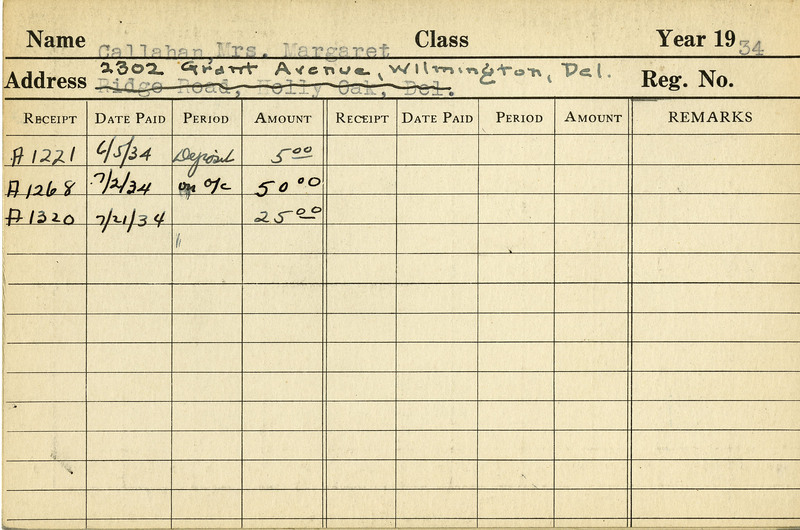 Name Callahan Mrs. Margaret Class Year 1934
Address 2302 Grant Avenue, Wilmington, Del. Reg. No.
Ridge Road, Holly Oak, Del.
RECEIPT DATE PAID PERIOD AMOUNT RECEIPT DATE PAID PERIOD AMOUNT REMARKS
A1221 6/5/34 Deposit 5 00
A1268 7/2/34 on a/c 50 00
A1320 7/21/34 25 00
"